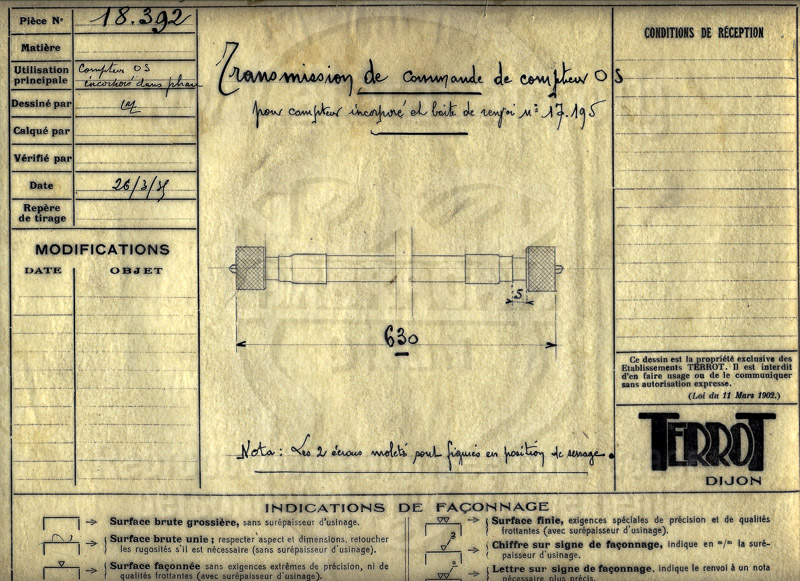 Pièce N° 18.392
Matière
Utilisation principale Compteur OS
incorporé dans phare
Dessiné par
Calqué par
Vérifié par
Date 26/3/35
Repère
de tirage
MODIFICATIONS
DATE OBJET
Transmission de commande de compteur OS
pour compteur incorporé et boite de renvoi n° 17.195
5
630
Nota : Les 2 écrous moletés sont figurés en position de serrage.
CONDITIONS DE RÉCEPTION
Ce dessin est la propriété exclusive des
Etablissements TERROT. Il est interdit
d'en faire usage ou de le communiquer
sans autorisation expresse.
(Loi du 11 Mars 1902.)
TERROT
DIJON
INDICATIONS DE FAÇONNAGE
Surface brute grossière, sans surépaisseur d'usinage.
Surface brute unie ; respecter aspect et dimensions, retoucher
les rugosités s'il est nécessaire (sans surépaisseur d'usinage).
Surface façonnée sans exigences extrêmes de précision, ni de
qualités frottantes (avec surépaisseur d'usinage).
Surface finie, exigences spéciales de précision et de qualités
frottantes (avec surépaisseur d'usinage).
2
Chiffre sur signe de façonnage, indique en m/m la suré-
paisseur d'usinage.
a
Lettre sur signe de façonnage, indique le renvoi à un nota
nécessaire plus précis.